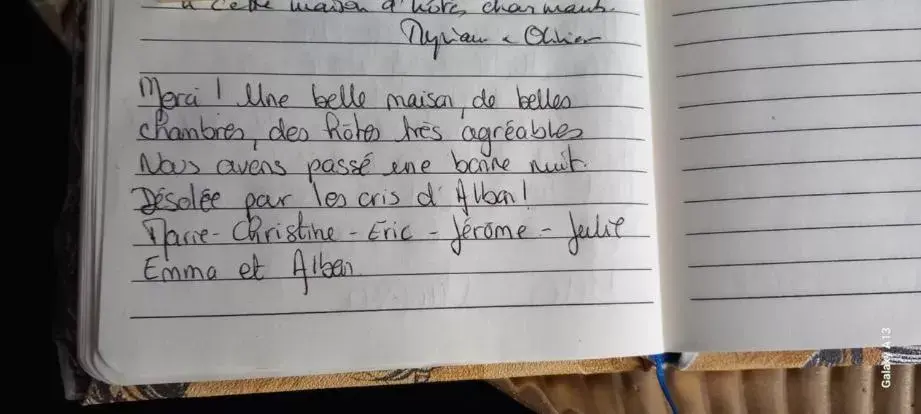 à cette maison d'hôtes charmante.
Myriam & Olivier
Merci ! Une belle maison, de belles
chambres, des hôtes très agréables
Nous avons passé une bonne nuit.
Désolée par les cris d'Alban !
Marie-Christine - Eric - Jérôme - Julie
Emma et Alban
Galaxy A13